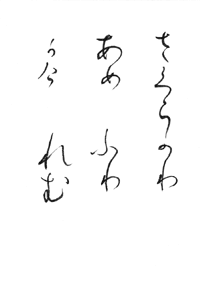 さくらのわ
あめ ふわ
れむ